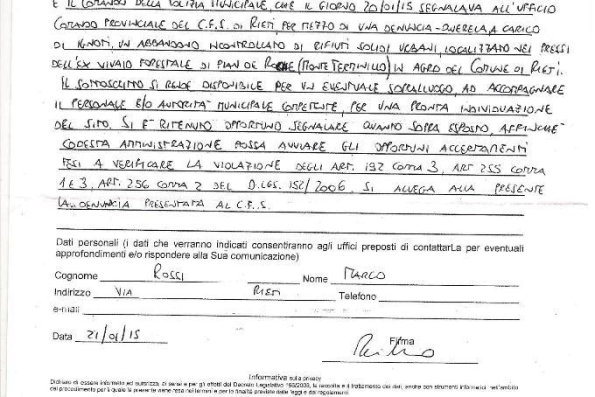 E IL COMANDO DELLA POLIZIA MUNICIPALE, CHE IL GIORNO 20/01/15 SEGNALAVA ALL'UFFICIO
COMANDO PROVINCIALE DEL C.F.S. DI RIETI, PER MEZZO DI UNA DENUNCIA-QUERELA A CARICO
DI IGNOTI, UN ABBANDONO INCONTROLLATO DI RIFIUTI SOLIDI URBANI, LOCALIZZATO NEI PRESSI
DELL'EX VIVAIO FORESTALE DI PIAN DE ROCHE (MONTE TERMINILLO) IN AGRO DEL COMUNE DI RIETI.
IL SOTTOSCRITTO SI RENDE DISPONIBILE PER UN EVENTUALE SOPRALLUOGO, AD ACCOMPAGNARE
IL PERSONALE E/O AUTORITA' MUNICIPALE COMPETENTE, PER UNA PRONTA INDIVIDUAZIONE
DEL SITO. SI E' RITENUTO OPPORTUNO SEGNALARE QUANTO SOPRA ESPOSTO, AFFINCHE'
CODESTA AMMINISTRAZIONE POSSA AVVIARE GLI OPPORTUNI ACCERTAMENTI
TESI A VERIFICARE LA VIOLAZIONE DEGLI ART. 192 COMMA 3, ART 255 COMMA
1 E 3, ART. 256 COMMA 2 DEL D.LGS. 152/2006. SI ALLEGA ALLA PRESENTE
LA DENUNCIA PRESENTATA AL C.F.S.
Dati personali (i dati che verranno indicati consentiranno agli uffici preposti di contattarLa per eventuali
approfondimenti e/o rispondere alla Sua comunicazione)
Cognome ROSSI Nome MARCO
Indirizzo VIA RIETI Telefono
e-mail
Data 21/01/15 Firma
Informativa sulla privacy
Dichiaro di essere informato ed autorizzo, ai sensi e per gli effetti del Decreto Legislativo 196/2003, la raccolta e il trattamento dei dati, anche con strumenti informatici, nell'ambito
del procedimento per il quale la presente viene resa nei termini e per le finalità previste dalle leggi e dai regolamenti